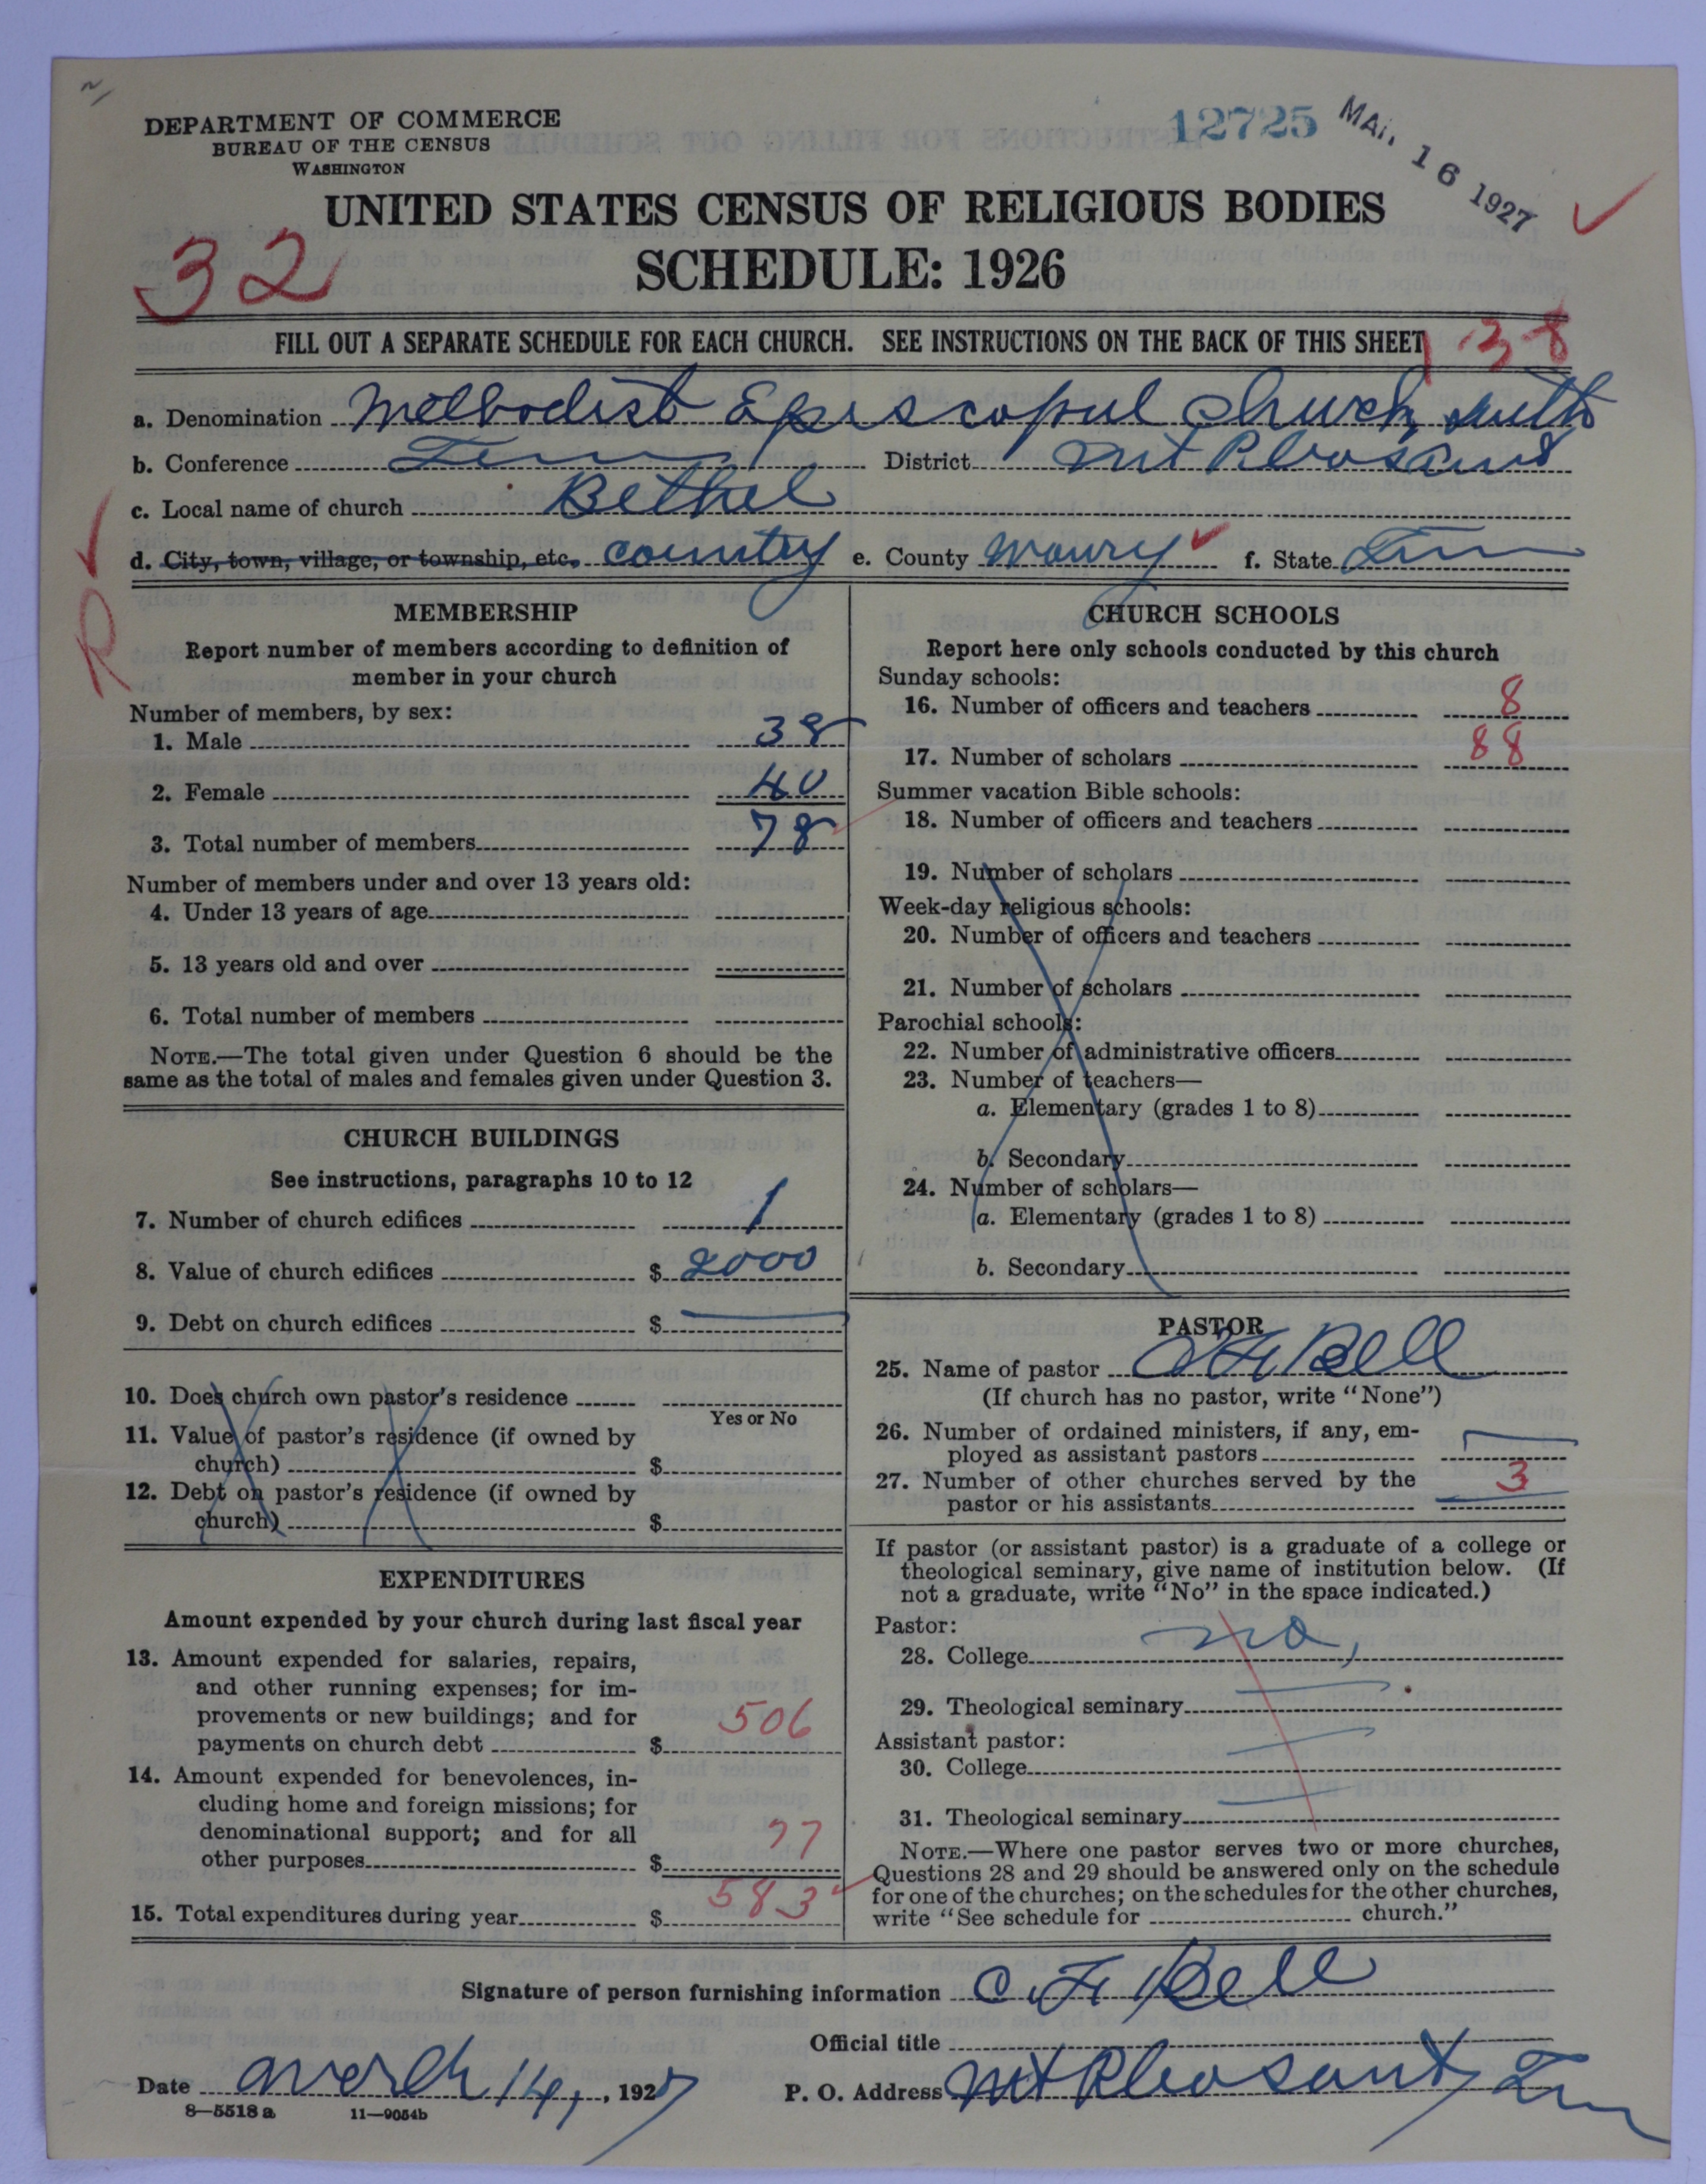 DEPARTMENT OF COMMERCE
BUREAU OF THE CENSUS
WASHINGTON
12725
MAR 16 1927
UNITED STATES CENSUS OF RELIGIOUS BODIES
SCHEDULE: 1926
32
FILL OUT A SEPARATE SCHEDULE FOR EACH CHURCH. SEE INSTRUCTIONS ON THE BACK OF THIS SHEET
138
a. Denomination Methodist Episcopal Church, South
b. Conference Tenn District Mt Pleasant
c. Local name of church Bethel
d. City, town, village, or township, etc. country e. County Maury f. State Tenn
R
MEMBERSHIP
Report number of members according to definition of
member in your church
Number of members, by sex:
1. Male 38
2. Female 40
3. Total number of members 78
Number of members under and over 13 years old:
4. Under 13 years of age
5. 13 years old and over
6. Total number of members
NOTE.—The total given under Question 6 should be the
same as the total of males and females given under Question 3.
CHURCH BUILDINGS
See instructions, paragraphs 10 to 12
7. Number of church edifices 1
8. Value of church edifices $ 2000
9. Debt on church edifices $
10. Does church own pastor's residence
Yes or No
11. Value of pastor's residence (if owned by
church) $
12. Debt on pastor's residence (if owned by
church) $
EXPENDITURES
Amount expended by your church during last fiscal year
13. Amount expended for salaries, repairs,
and other running expenses; for im-
provements or new buildings; and for
payments on church debt $ 506
14. Amount expended for benevolences, in-
cluding home and foreign missions; for
denominational support; and for all
other purposes $ 77
15. Total expenditures during year $ 583
CHURCH SCHOOLS
Report here only schools conducted by this church
Sunday schools:
16. Number of officers and teachers 8
17. Number of scholars 88
Summer vacation Bible schools:
18. Number of officers and teachers
19. Number of scholars
Week-day religious schools:
20. Number of officers and teachers
21. Number of scholars
Parochial schools:
22. Number of administrative officers
23. Number of teachers—
a. Elementary (grades 1 to 8)
b. Secondary
24. Number of scholars—
a. Elementary (grades 1 to 8)
b. Secondary
PASTOR
25. Name of pastor C F Bell
(If church has no pastor, write "None")
26. Number of ordained ministers, if any, em-
ployed as assistant pastors
27. Number of other churches served by the
pastor or his assistants 3
If pastor (or assistant pastor) is a graduate of a college or
theological seminary, give name of institution below. (If
not a graduate, write "No" in the space indicated.)
Pastor:
28. College no,
29. Theological seminary
Assistant pastor:
30. College
31. Theological seminary
NOTE.—Where one pastor serves two or more churches,
Questions 28 and 29 should be answered only on the schedule
for one of the churches; on the schedules for the other churches,
write "See schedule for church."
Signature of person furnishing information C. F. Bell
Official title
Date March 14, , 1927 P. O. Address Mt Pleasant, Tenn
8—5518a 11—9054b